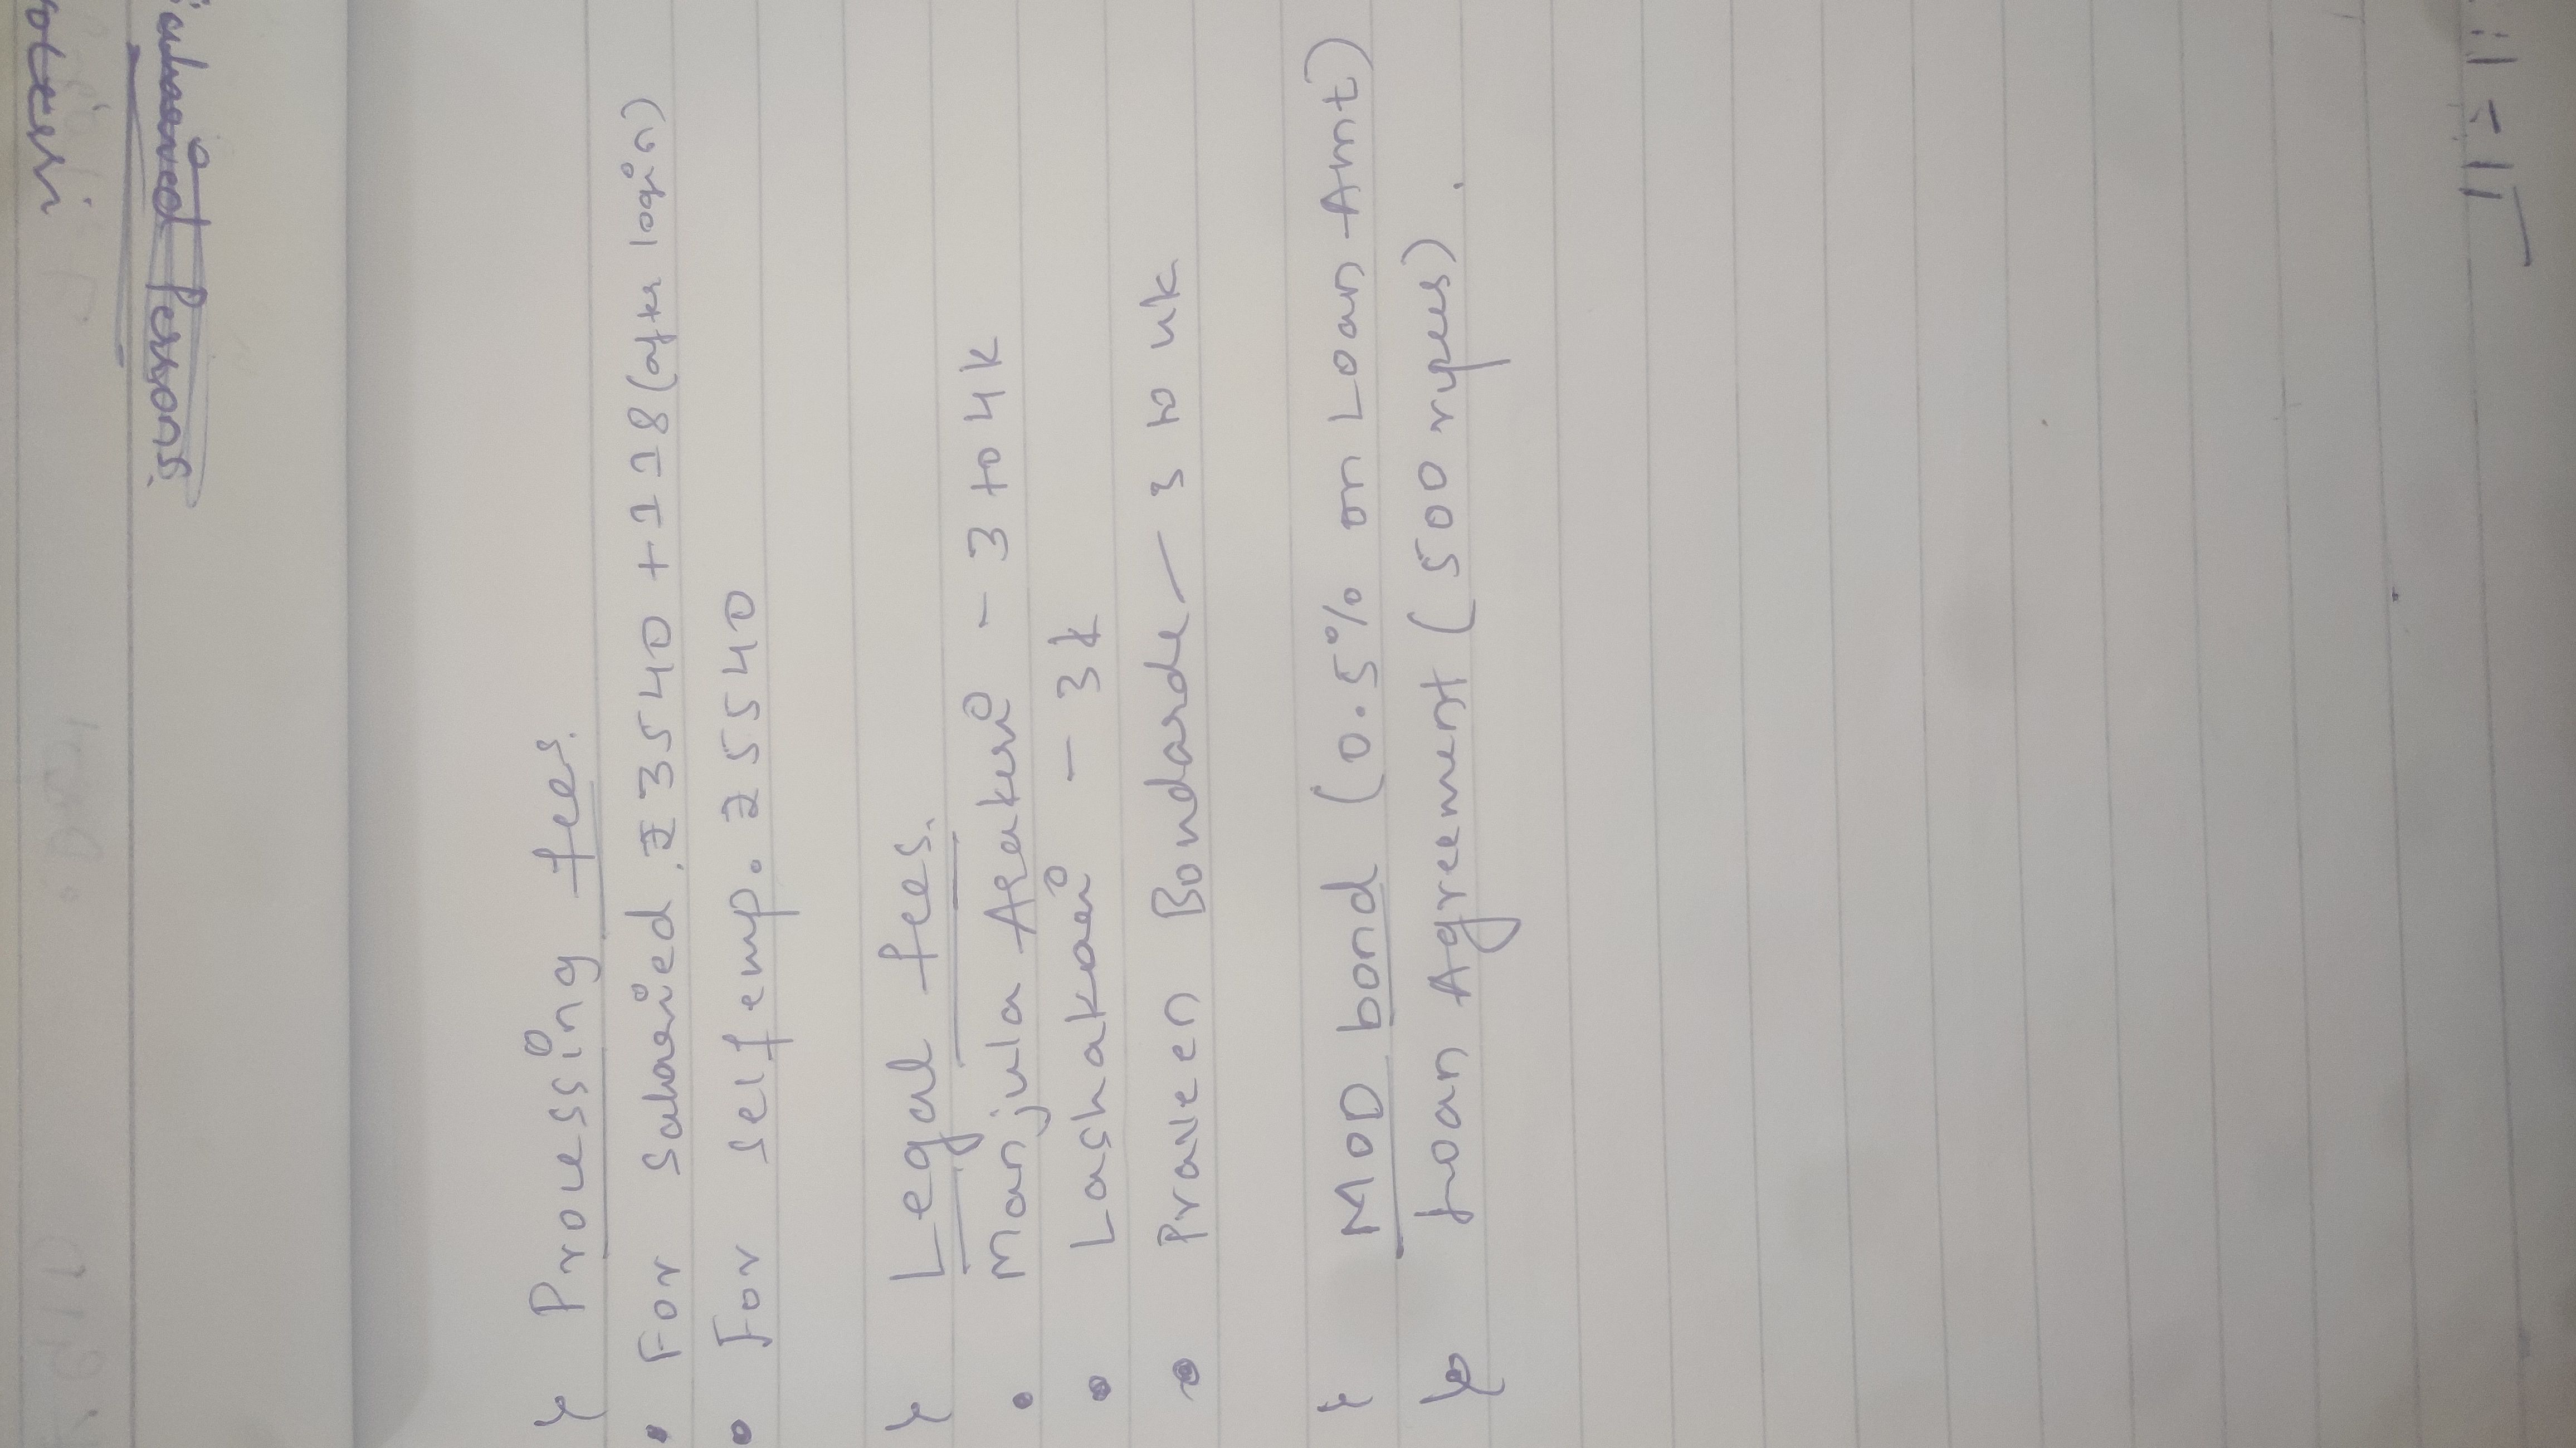 Persons.
Processing fees.
• For Salaried . ₹3540 + 118 (after login)
• For self emp. ₹5540
Legal fees.
• Manjula Arakeri - 3 to 4k
• Lashakari - 3k
• Praveen Bondarde - 3 to 4k
MOD bond (0.5% on Loan Amt)
Loan Agreement (500 rupees)